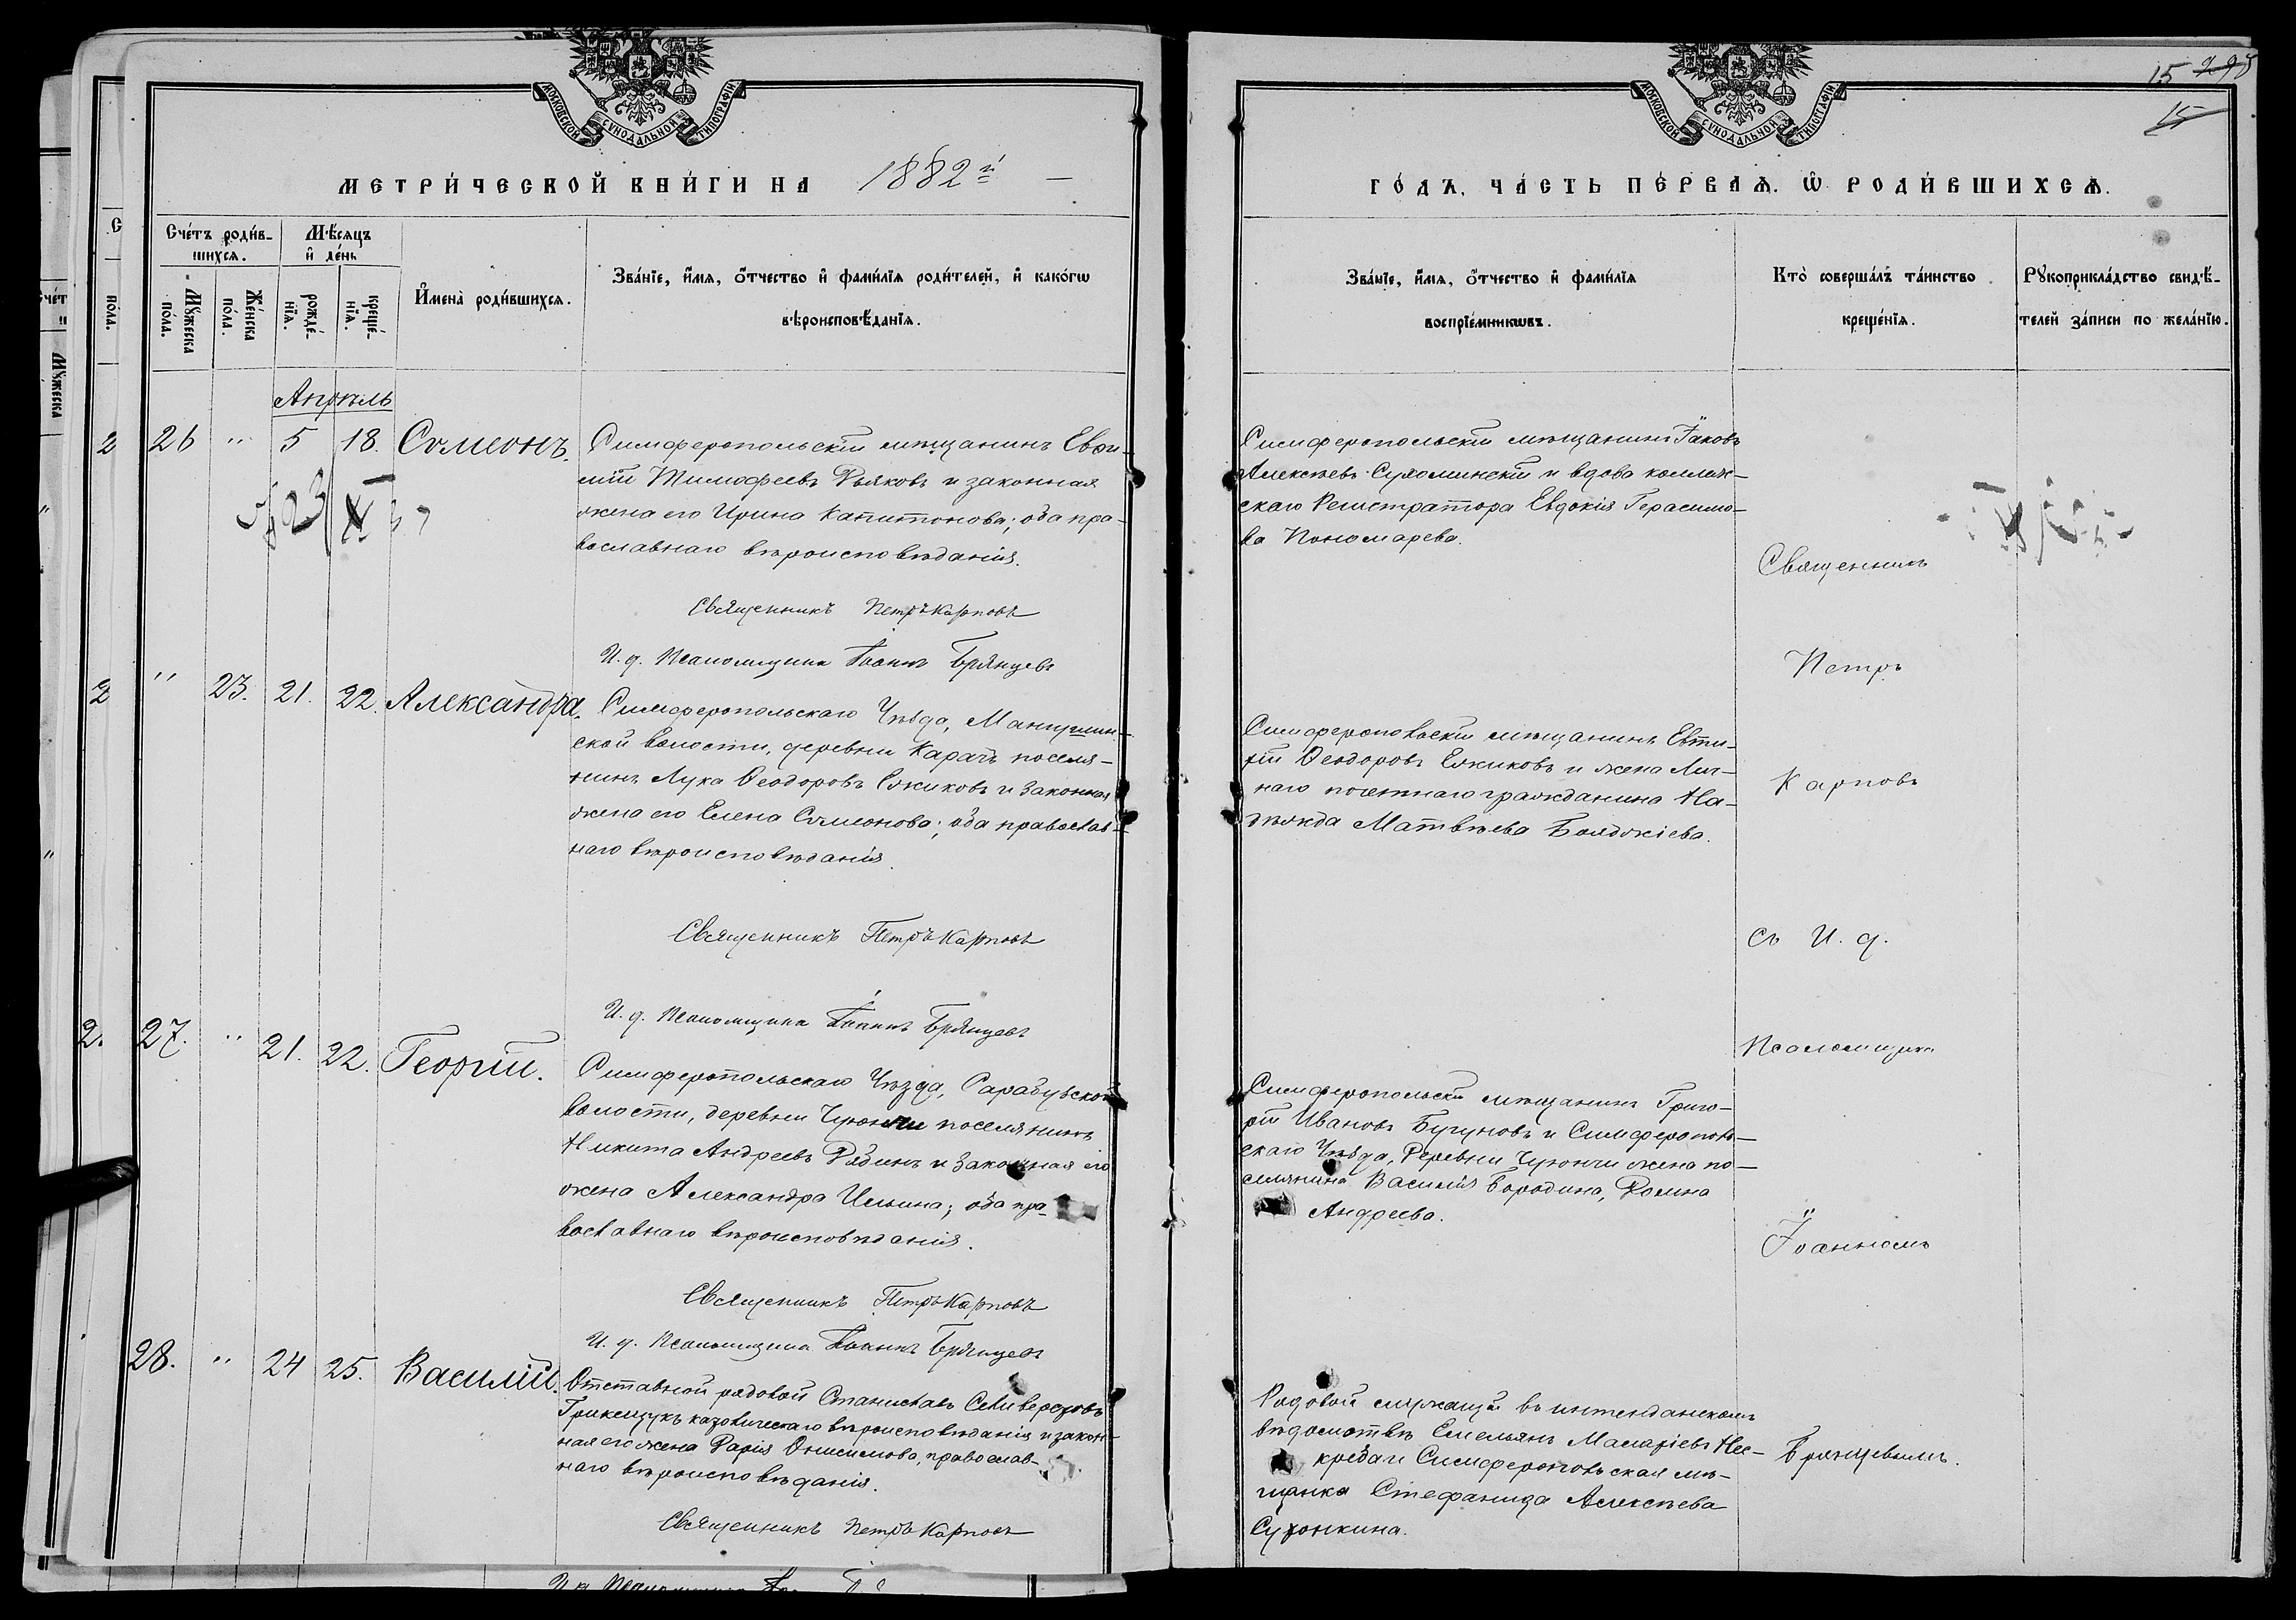 МОСКОВСКОЙ СѴНОДАЛЬНОЙ ТИПОГРАФІИ
МЕТРИ́ЧЕСКОЙ КНИ́ГИ НА 1882 й
Сче́тъ роди́в-
шихсѧ.
Мѣсѧцъ
и҆ де́нь
Мꙋ́жеска
по́ла.
Же́нска
по́ла.
рожде́-
нїѧ.
креще́-
нїѧ.
И҆мена̀ роди́вшихсѧ.
Зва́нїе, и҆́мѧ, ѻ҆́тчество и҆ фами́лїѧ роди́телей, и҆ како́гѡ
вѣроисповѣ́данїѧ.
Апрѣль
26 " 5 18. Сѵмеонъ.
Симферопольскій мѣщанинъ Евѳи-
мій Тимоѳеевъ Дьяковъ и законная
жена его Ирина Капитонова; оба пра-
вославнаго вѣроисповѣданія.
Священникъ Петръ Карповъ
И. д. Псаломщика Іоаннъ Брянцевъ
" 23. 21. 22. Александра.
Симферопольскаго Уѣзда, Мангушин-
ской волости, деревни Карачъ поселя-
нинъ Лука Ѳеодоровъ Ежиковъ и законная
жена его Елена Сѵмеонова; оба православ-
наго вѣроисповѣданія.
Священникъ Петръ Карповъ
И. д. Псаломщика Іоаннъ Брянцевъ
27. " 21. 22. Георгій.
Симферопольскаго Уѣзда, Сарабузской
волости, деревни Чуюнчи поселянинъ
Никита Андреевъ Рядинъ и законная его
жена Александра Ильина; оба пра-
вославнаго вѣроисповѣданія.
Священникъ Петръ Карповъ
И. д. Псаломщика Іоаннъ Брянцевъ
28. " 24 25. Василій.
Отставной рядовой Станиславъ Селиверстовъ
Грикещукъ католическаго вѣроисповѣданія и закон-
ная его жена Дарія Онисимова, православ-
наго вѣроисповѣданія.
Священникъ Петръ Карповъ
15
15
МОСКОВСКОЙ СѴНОДАЛЬНОЙ ТИПОГРАФІИ
ГО́ДЪ, ЧА́СТЬ ПЕ́РВАѦ, Ѡ҆ РОДИ́ВШИХСѦ.
Зва́нїе, и҆́мѧ, ѻ҆́тчество и҆ фами́лїѧ
воспрїе́мникѡвъ.
Кто̀ соверша́лъ та́инство
креще́нїѧ.
Рꙋкоприкла́дство свидѣ́-
телей за́писи по жела́нїю.
Симферопольскій мѣщанинъ Іаковъ
Алексѣевъ Сухоминскій и вдова коллеж-
скаго Регистратора Евдокія Герасимо-
ва Пономарева.
Симферопольскій мѣщанинъ Евти-
хій Ѳеодоровъ Ежиковъ и жена Лич-
наго почетнаго гражданина На-
дежда Матвѣева Бояджіева.
Симферопольскій мѣщанинъ Григо-
рій Ивановъ Бугуновъ и Симферополь-
скаго Уѣзда, Деревни Чуюнчи жена по-
селянина Василія Бородина, Домна
Андреева.
Рядовой служащій въ интенданскомъ
вѣдомствѣ Емельянъ Макаріевъ Нес-
кребай Симферопольская мѣ-
щанка Стефанида Алексѣева
Сухонкина.
Священникъ
Петръ
Карповъ
съ И. д.
Псаломщика
Іоанномъ
Брянцевымъ.